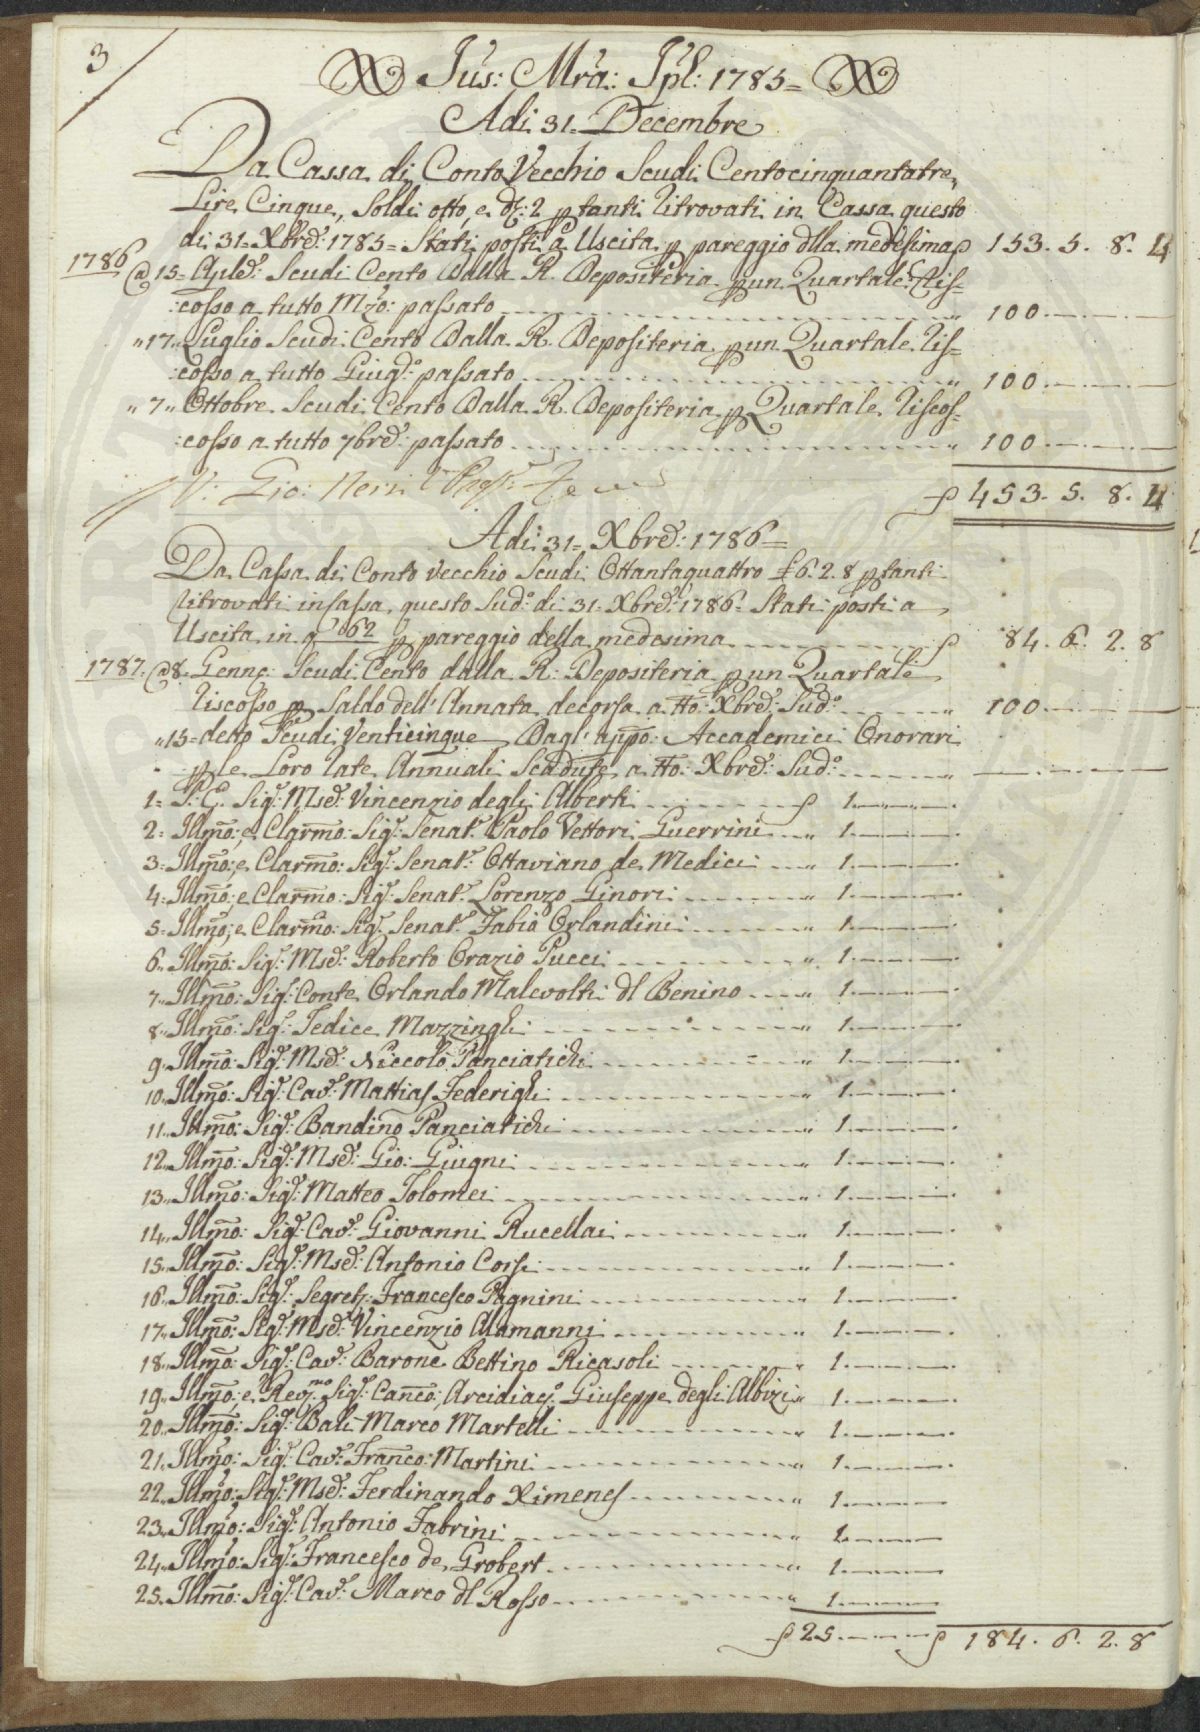 3
Jus: Mra: Jpl: 1785=
Adi 31= Decembre
Da Cassa di Conto Vecchio Scudi Centocinquantatre,
Lire Cinque, Soldi otto, e d: 2 p tanti ritrovati in Cassa questo
di 31= Xbre: 1785= Stati posti a Uscita p pareggio dlla medesima 153. 5. 8. 4
1786
@ 15= Aple: Scudi Cento Dalla R. Depositeria p un Quartale Ris=
:cosso a tutto Mzo: passato 100
" 17" Luglio Scudi Cento Dalla R. Depositeria p un Quartale Ris=
:cosso a tutto Giugo: passato " 100
" 7" Ottobre Scudi Cento Dalla R. Depositeria p Quartale Riscos=
:cosso a tutto 7bre: passato " 100
V: Gio: Neri
453. 5. 8. 4
Adi 31= Xbre: 1786=
Da Cassa di Conto Vecchio Scudi Ottantaquattro £ 6. 2. 8 p tanti
ritrovati in Cassa, questo Sudo: di 31= Xbre: 1786= Stati posti a
Uscita in 62 p pareggio della medesima 84. 6. 2. 8
1787. @ 8. Genn: Scudi Cento dalla R: Depositeria p un Quartale
riscosso p Saldo dell' Annata decorsa a tto: Xbre: Sudo: " 100
" 15= detto Scudi Venticinque Dagl' appo: Accademici Onorari
p le Loro tate Annuali Scadute a tto: Xbre: Sudo: "
1= S: E. Sigr: Mse: Vincenzio degli Alberti 1
2= Illmo: e Clarmo: Sigr: Senatr: Paolo Vettori Guerrini " 1
3= Illmo: e Clarmo: Sigr: Senatr: Ottaviano de Medici " 1
4= Illmo: e Clarmo: Sigr: Senatr: Lorenzo Ginori " 1
5= Illmo: e Clarmo: Sigr: Senatr: Fabio Orlandini " 1
6" Illmo: Sigr: Mse: Roberto Orazio Pucci " 1
7" Illmo: Sigr: Conte Orlando Malevolti dl Benino " 1
8" Illmo: Sigr: Tedice Mazzinghi " 1
9" Illmo: Sigr: Mse: Niccolò Panciatichi " 1
10" Illmo: Sigr: Cavr: Mattias Federighi " 1
11" Illmo: Sigr: Bandino Panciatichi " 1
12" Illmo: Sigr: Mse: Gio: Giugni " 1
13" Illmo: Sigr: Matteo Tolomei " 1
14" Illmo: Sigr: Cavr: Giovanni Rucellai " 1
15" Illmo: Sigr: Mse: Antonio Corsi " 1
16" Illmo: Sigr: Segret: Francesco Pagnini " 1
17" Illmo: Sigr: Mse: Vincenzio Alamanni " 1
18" Illmo: Sigr: Cavr: Barone Bettino Ricasoli " 1
19" Illmo: e Revmo: Sigr: Canco: Arcidiaco: Giuseppe degli Albizi " 1
20" Illmo: Sigr: Balì Marco Martelli " 1
21" Illmo: Sigr: Cavr: Franco: Martini " 1
22" Illmo: Sigr: Mse: Ferdinando Ximenes " 1
23" Illmo: Sigr: Antonio Fabrini 1
24" Illmo: Sigr: Francesco de Grobert " 1
25" Illmo: Sigr: Cavr: Marco dl Rosso " 1
25 184. 6. 2. 8